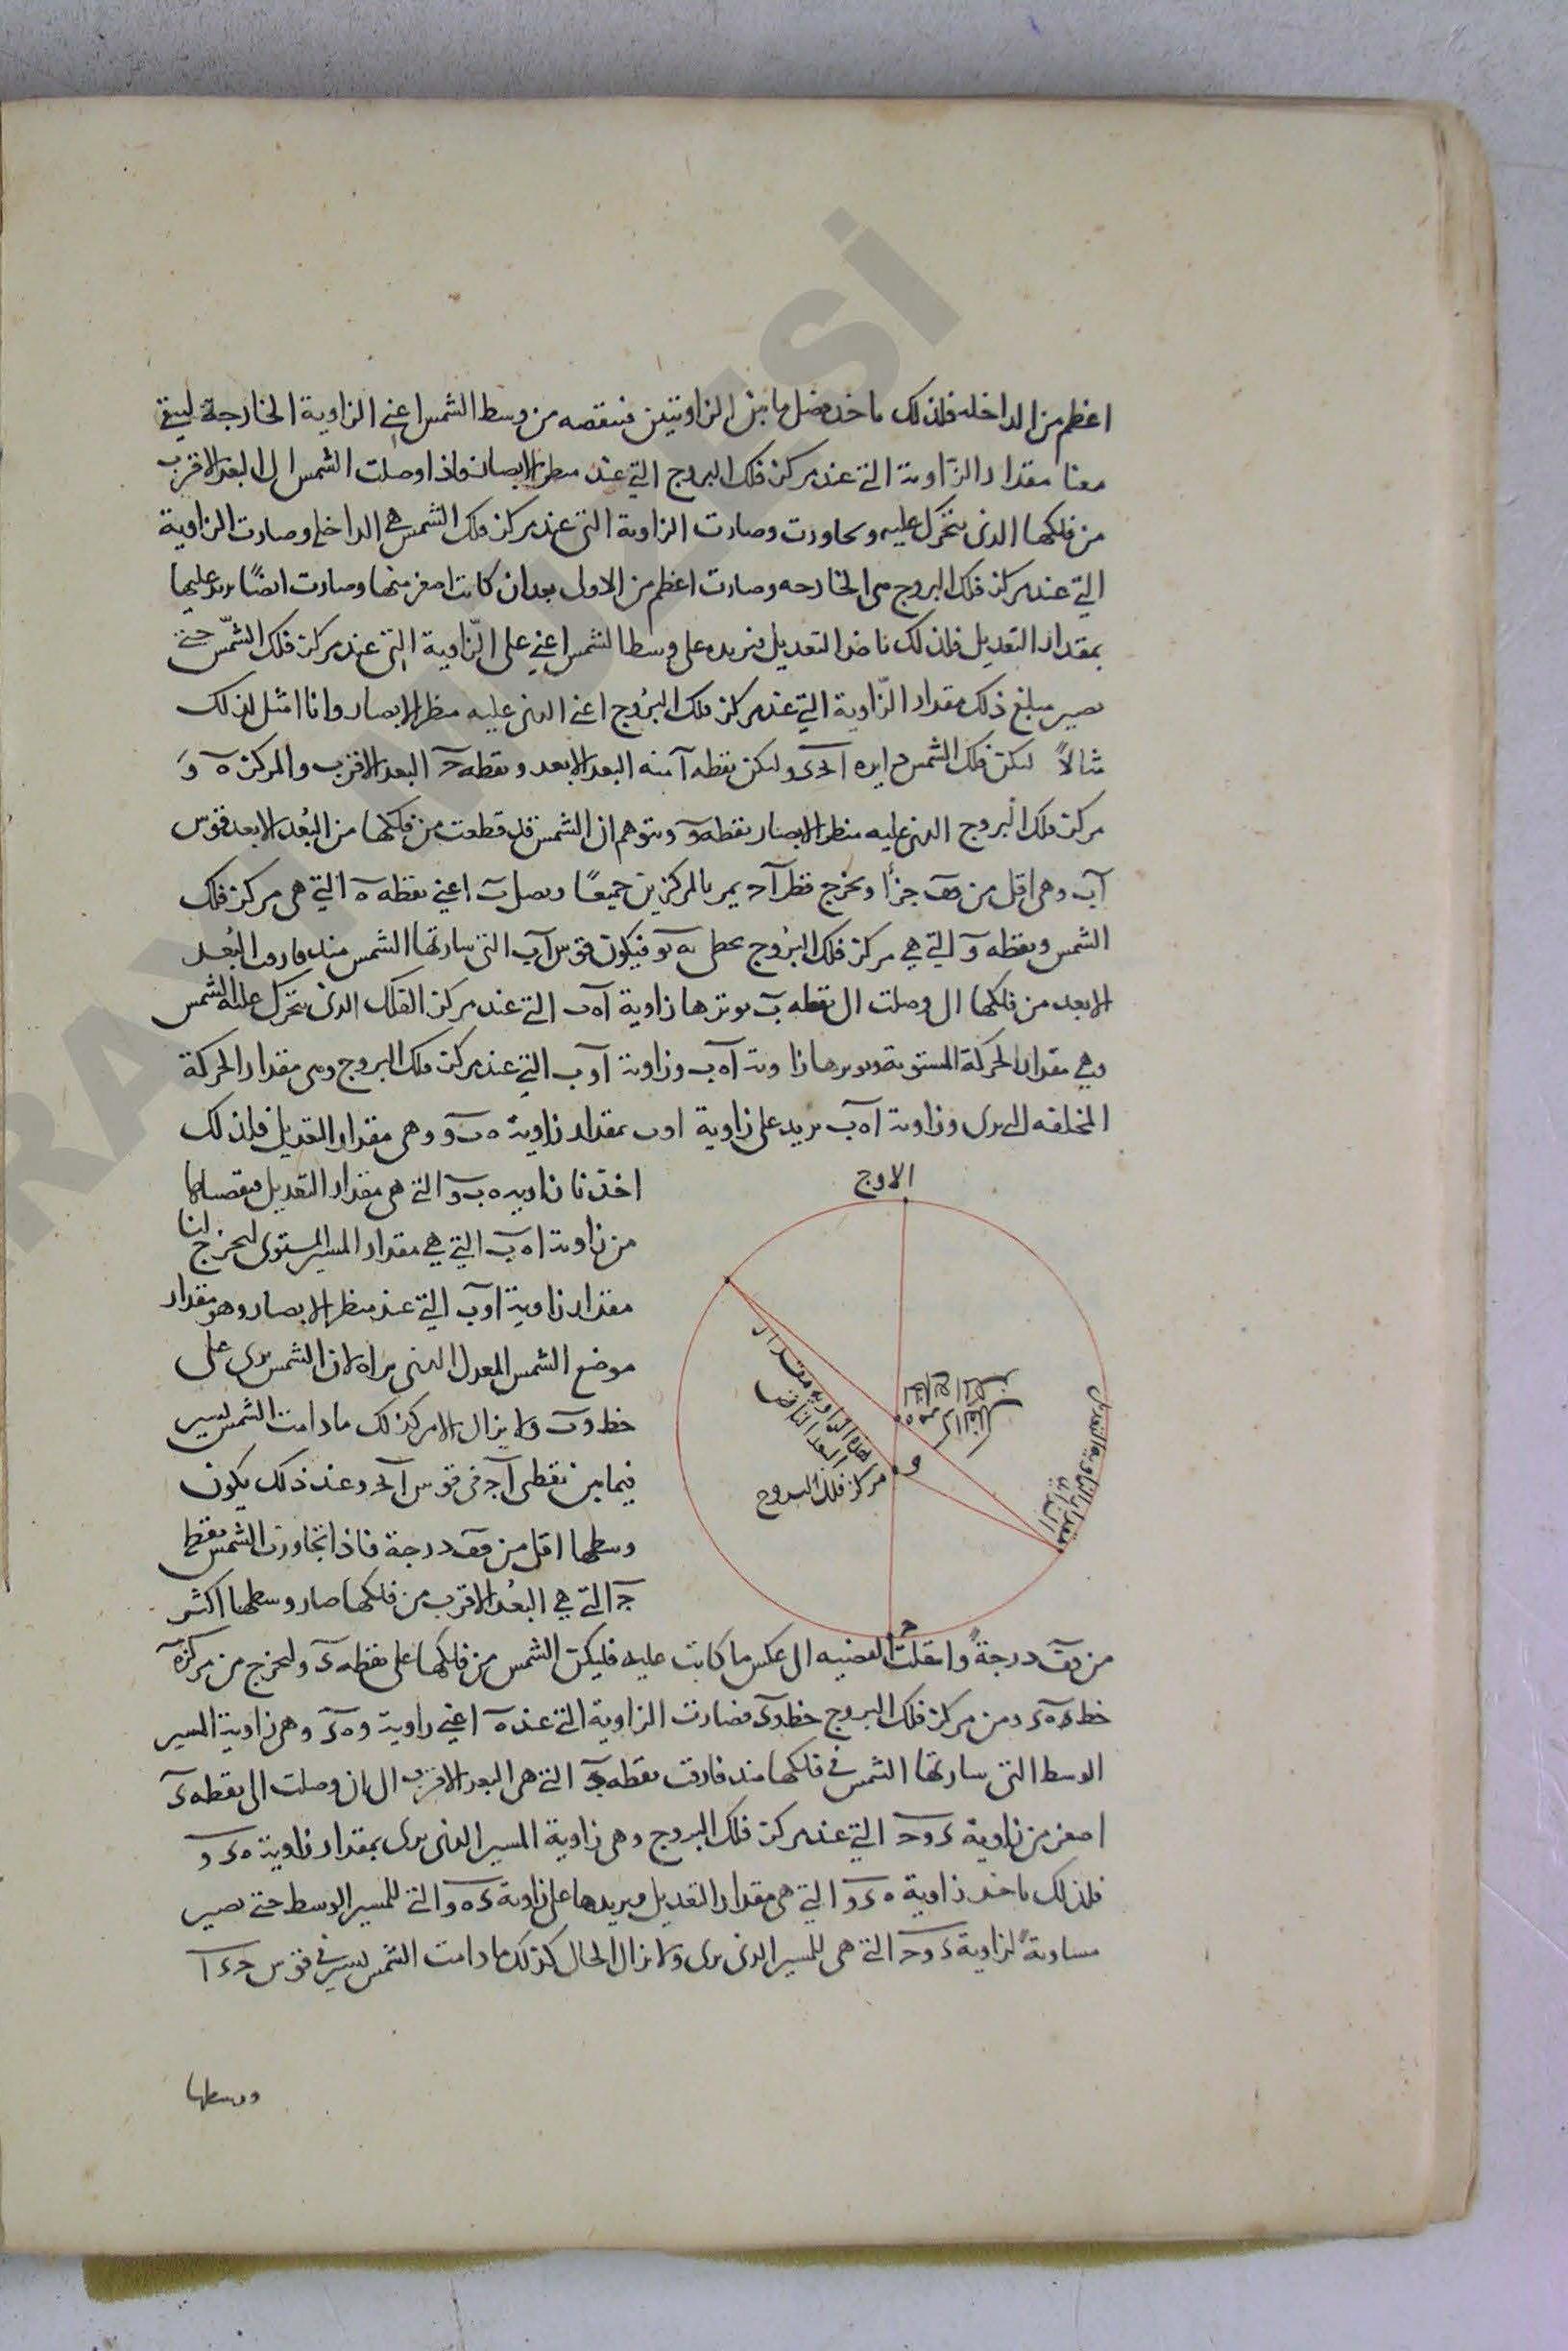 اعظم من الداخله فلذلك ناخذ فضل ما بين الزاويتين فننقصه من وسط الشمس اعني الزاوية الخارجة ليبقى
معنا مقدار الزاوية التي عند مركز فلك البروج التي عند منظر الابصار فاذا وصلت الشمس الى البعد الاقرب
من فلكها الذي يتحرك عليه وتجاوزت وصارت الزاوية التي عند مركز فلك الشمس هي الداخلة وصارت الزاوية
التي عند مركز فلك البروج هي الخارجه وصارت اعظم من الاولى بعد ان كانت اصغر منها وصارت ايضًا تزيد عليها
بمقدار التعديل فلذلك ناخذ التعديل فنزيده على وسط الشمس اعني على الزّاوية التي عند مركز فلك الشمس حتى
يصير مبلغ ذلك مقدار الزّاوية التي عند مركز فلك البرُوج اعني الذي عليه منظر الابصار وانا امثل لذلك
مثالاً ليكن فلك الشمس دايره ا ب ج د وليكن نقطه آ منه البعد الابعد ونقطه ج البعد الاقرب والمركز ه و
مركز فلك البروج الذي عليه منظر الابصار نقطه و ونتوهم ان الشمس قد قطعت من فلكها من البُعد الابعد قوس
آب وهي اقل من قف جزأ ونخرج قطر آج يمر بالمركزين جميعًا ونصل ب اعني نقطه ه التي هي مركز فلك
الشمس ونقطه و التي هي مركز فلك البرُوج بخطي به بو فيكون قوس آب التي سارتها الشمس منذ فارقت البُعد
الابعد من فلكها الى وصلت الى نقطه ب يوترها زاوية اه ب التي عند مركز الفلك الذي يتحرك عليه الشمس
وهي مقدار الحركة المستوية ويوترها زاوية آه ب وزاوية آوب التي عند مركز فلك البروج وهي مقدار الحركة
المختلفه التي ترى وزاوية اه ب تزيد على زاوية اوب بمقدار زاوية ه ب و وهي مقدار التعديل فلذلك
اخذنا زاويه ه ب و التي هي مقدار التعديل فنقصناها
من زاوية اه ب التي هي مقدار المسير المستوى ليخرج لنا
مقدار زاوية اوب التي عند منظر الابصار وهو مقدار
موضع الشمس المعدل الذي نراه لان الشمس ترى على
خط وب ولا يزال الامر كذلك ما دامت الشمس تسير
فيما بين نقطتي آج في قوس ا ب ج وعند ذلك يكون
وسطها اقل من قف درجة فاذا تجاوزت الشمس نقطة
ج التي هي البعُد الاقرب من فلكها صار وسطها اكثر
من قف درجةً وانقلبت القضيه الى عكس ما كانت عليه فليكن الشمس من فلكها على نقطه د وليخرج من مركز ه
خط ه د ومن مركز فلك البروج خط و د فصارت الزاوية التي عند ه اعني زاوية و ه د وهي زاوية المسير
الوسط التي سارتها الشمس في فلكها منذ فارقت نقطه ج التي هي البعد الاقرب الى ان وصلت الى نقطه د
اصغر من زاوية د و ج التي عند مركز فلك البروج وهي زاوية المسير الذي يرى بمقدار زاوية ه د و
فلذلك ناخذ زاوية ه د و التي هي مقدار التعديل ونزيدها على زاوية د ه و التي للمسير الوسط حتى تصير
مساويةً لزاوية د و ج التي هي للمسير الذي يرى ولا يزال الحال كذلك ما دامت الشمس تسير في قوس ج د ا
الاوج
هذه الزاوية مقدار
البعد الناقص
مركز فلك البروج
و
ج
ووسطها